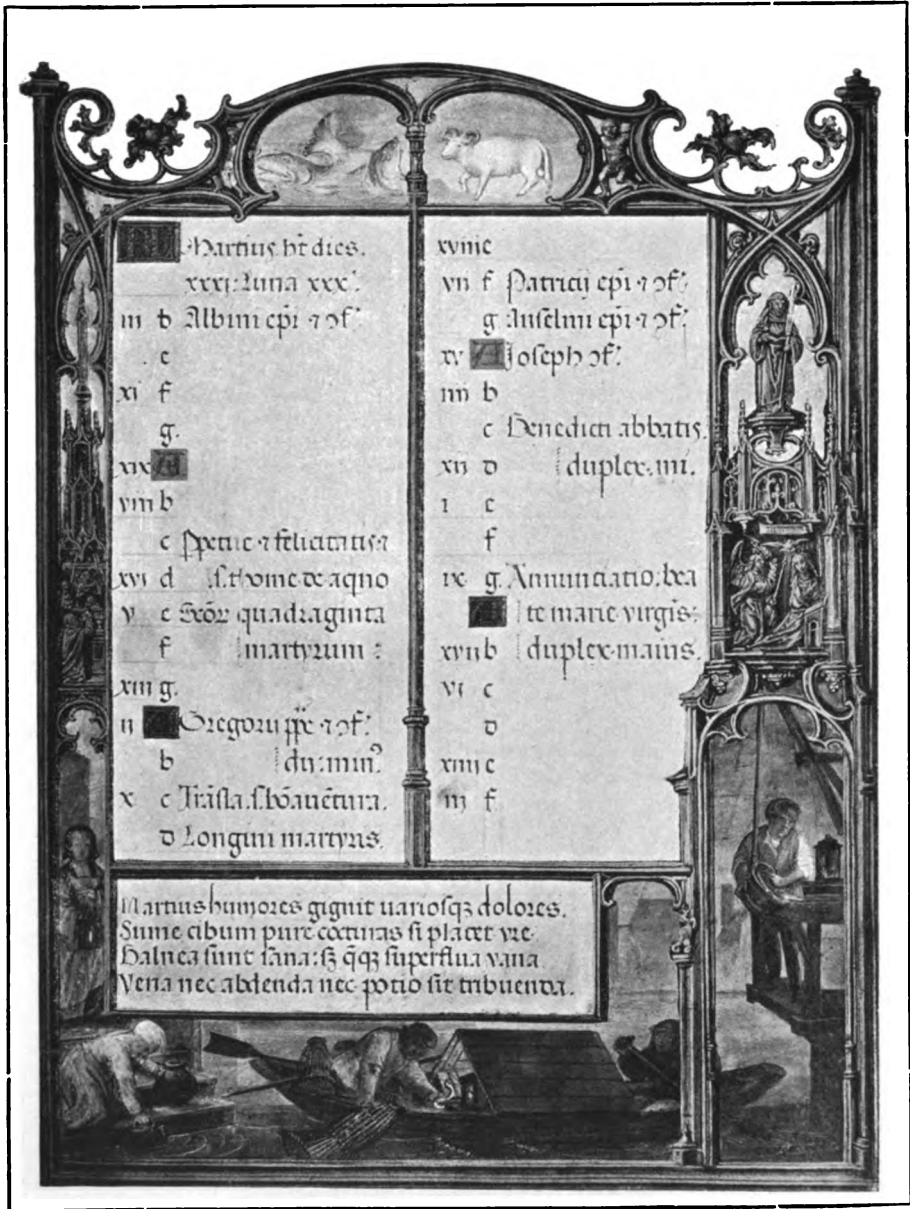 KL Martius ht dies.
xxxi: luna xxx.
iii d Albini epi ⁊ ꝯf.
e
xi f
g.
xix A
viii b
c Ppetue ⁊ felicitatis ⁊
xvi d .s. thome de aqno
v e Scōꝝ quadraginta
f martyrum :
xiii g.
ii A Gregorii ppe ⁊ ꝯf.
b du: min⁹.
x c Trāsla. s. bōauētura.
d Longini martyris.
xviii e
vii f Patricij epi ⁊ ꝯf.
g Anselmi epi ⁊ ꝯf.
xv A Joseph ꝯf.
iiii b
c Benedicti abbatis.
xii d duplex. mi.
i e
f
ix g. Annunciatio. bea
A te marie virgis:
xvii b duplex. maius.
vi c
d
xiiii e
iii f
Martius humores gignit uariosqꝫ dolores.
Sume cibum pure cocturas si placet vre.
Balnea sunt sana: sꝫ q̄qꝫ superflua vana
Vena nec abdenda nec potio sit tribuenda.